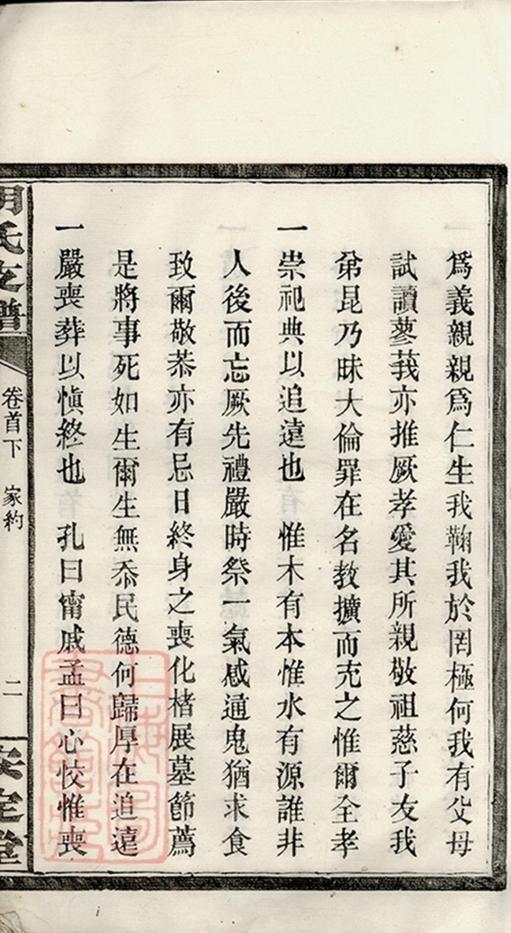 為義親親為仁生我鞠我於罔極何我有父母
試讀蓼莪亦推厥孝愛其所親敬祖慈子友我
弟昆乃昧大倫罪在名教擴而充之惟爾全孝
一崇祀典以追遠也 惟木有本惟水有源誰非
人後而忘厥先禮嚴時祭一氣感通鬼猶求食
致爾敬恭亦有忌日終身之喪化楮展墓節薦
是將事死如生爾生無忝民德何歸厚在追遠
一嚴喪葬以慎終也 孔曰甯戚孟曰心恔惟喪
氏支譜
卷首下 家約
二
定堂